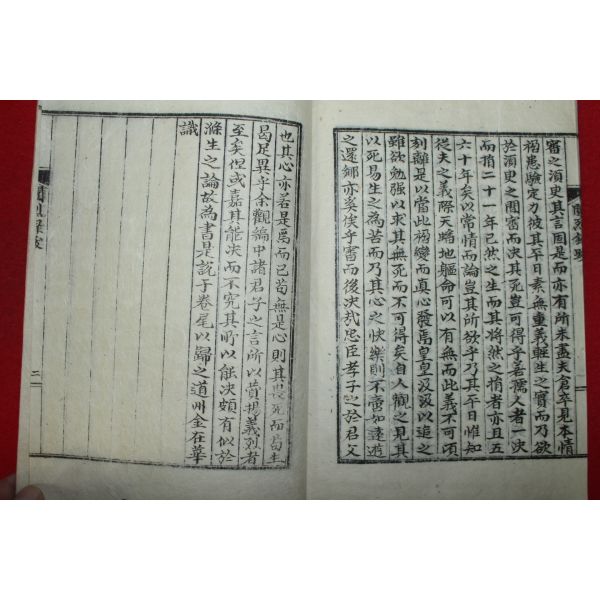 審之須更其言固是而亦有所未盡夫倉卒見本情
禍患驗定力彼其平日素無重義輕生之實而乃欲
於須更之間審而決其死豈可得乎善孺人者一決
而猶二十一年已然之生而其將然之猶者亦且五
六十年矣以常情而論豈其所欲乎乃其平日惟知
從夫之義際天蟠地軀命可以有無而此義不可頃
刻離是以當此禍變而真心發焉皇皇汲汲以追之
雖欲勉强以求其無死而不可得矣自人觀之見其
以死易生之為苦而乃其心之快樂則不啻如遠遊
之還鄉亦奚俟乎審而後決哉忠臣孝子之於君父
也其心亦若是焉而已苟無是心則其畏死而苟生
曷足異乎余觀編中諸君子之言所以賛揚義烈者
至矣但或嘉其能決而不究其所以能決頗有似於
滌生之論故為書是說于卷尾以歸之道州金在華
識
二